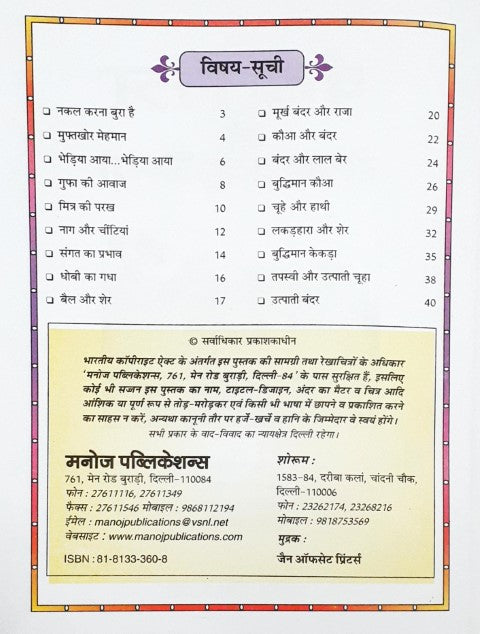 विषय-सूची
❑ नकल करना बुरा है 3
❑ मुफ्तखोर मेहमान 4
❑ भेड़िया आया...भेड़िया आया 6
❑ गुफा की आवाज 8
❑ मित्र की परख 10
❑ नाग और चींटियां 12
❑ संगत का प्रभाव 14
❑ धोबी का गधा 16
❑ बैल और शेर 17
❑ मूर्ख बंदर और राजा 20
❑ कौआ और बंदर 22
❑ बंदर और लाल बेर 24
❑ बुद्धिमान कौआ 26
❑ चूहे और हाथी 29
❑ लकड़हारा और शेर 32
❑ बुद्धिमान केकड़ा 35
❑ तपस्वी और उत्पाती चूहा 38
❑ उत्पाती बंदर 40
© सर्वाधिकार प्रकाशकाधीन
भारतीय कॉपीराइट ऐक्ट के अंतर्गत इस पुस्तक की सामग्री तथा रेखाचित्रों के अधिकार
'मनोज पब्लिकेशन्स, 761, मेन रोड बुराड़ी, दिल्ली-84' के पास सुरक्षित हैं, इसलिए
कोई भी सज्जन इस पुस्तक का नाम, टाइटल-डिजाइन, अंदर का मैटर व चित्र आदि
आंशिक या पूर्ण रूप से तोड़-मरोड़कर एवं किसी भी भाषा में छापने व प्रकाशित करने
का साहस न करें, अन्यथा कानूनी तौर पर हर्जे-खर्चे व हानि के जिम्मेदार वे स्वयं होंगे।
सभी प्रकार के वाद-विवाद का न्यायक्षेत्र दिल्ली रहेगा।
मनोज पब्लिकेशन्स
761, मेन रोड बुराड़ी, दिल्ली-110084
फोन : 27611116, 27611349
फैक्स : 27611546 मोबाइल : 9868112194
ईमेल : manojpublications@vsnl.net
वेबसाइट : www.manojpublications.com
ISBN : 81-8133-360-8
शोरूम :
1583-84, दरीबा कलां, चांदनी चौक,
दिल्ली-110006
फोन : 23262174, 23268216
मोबाइल : 9818753569
मुद्रक :
जैन ऑफसेट प्रिंटर्स